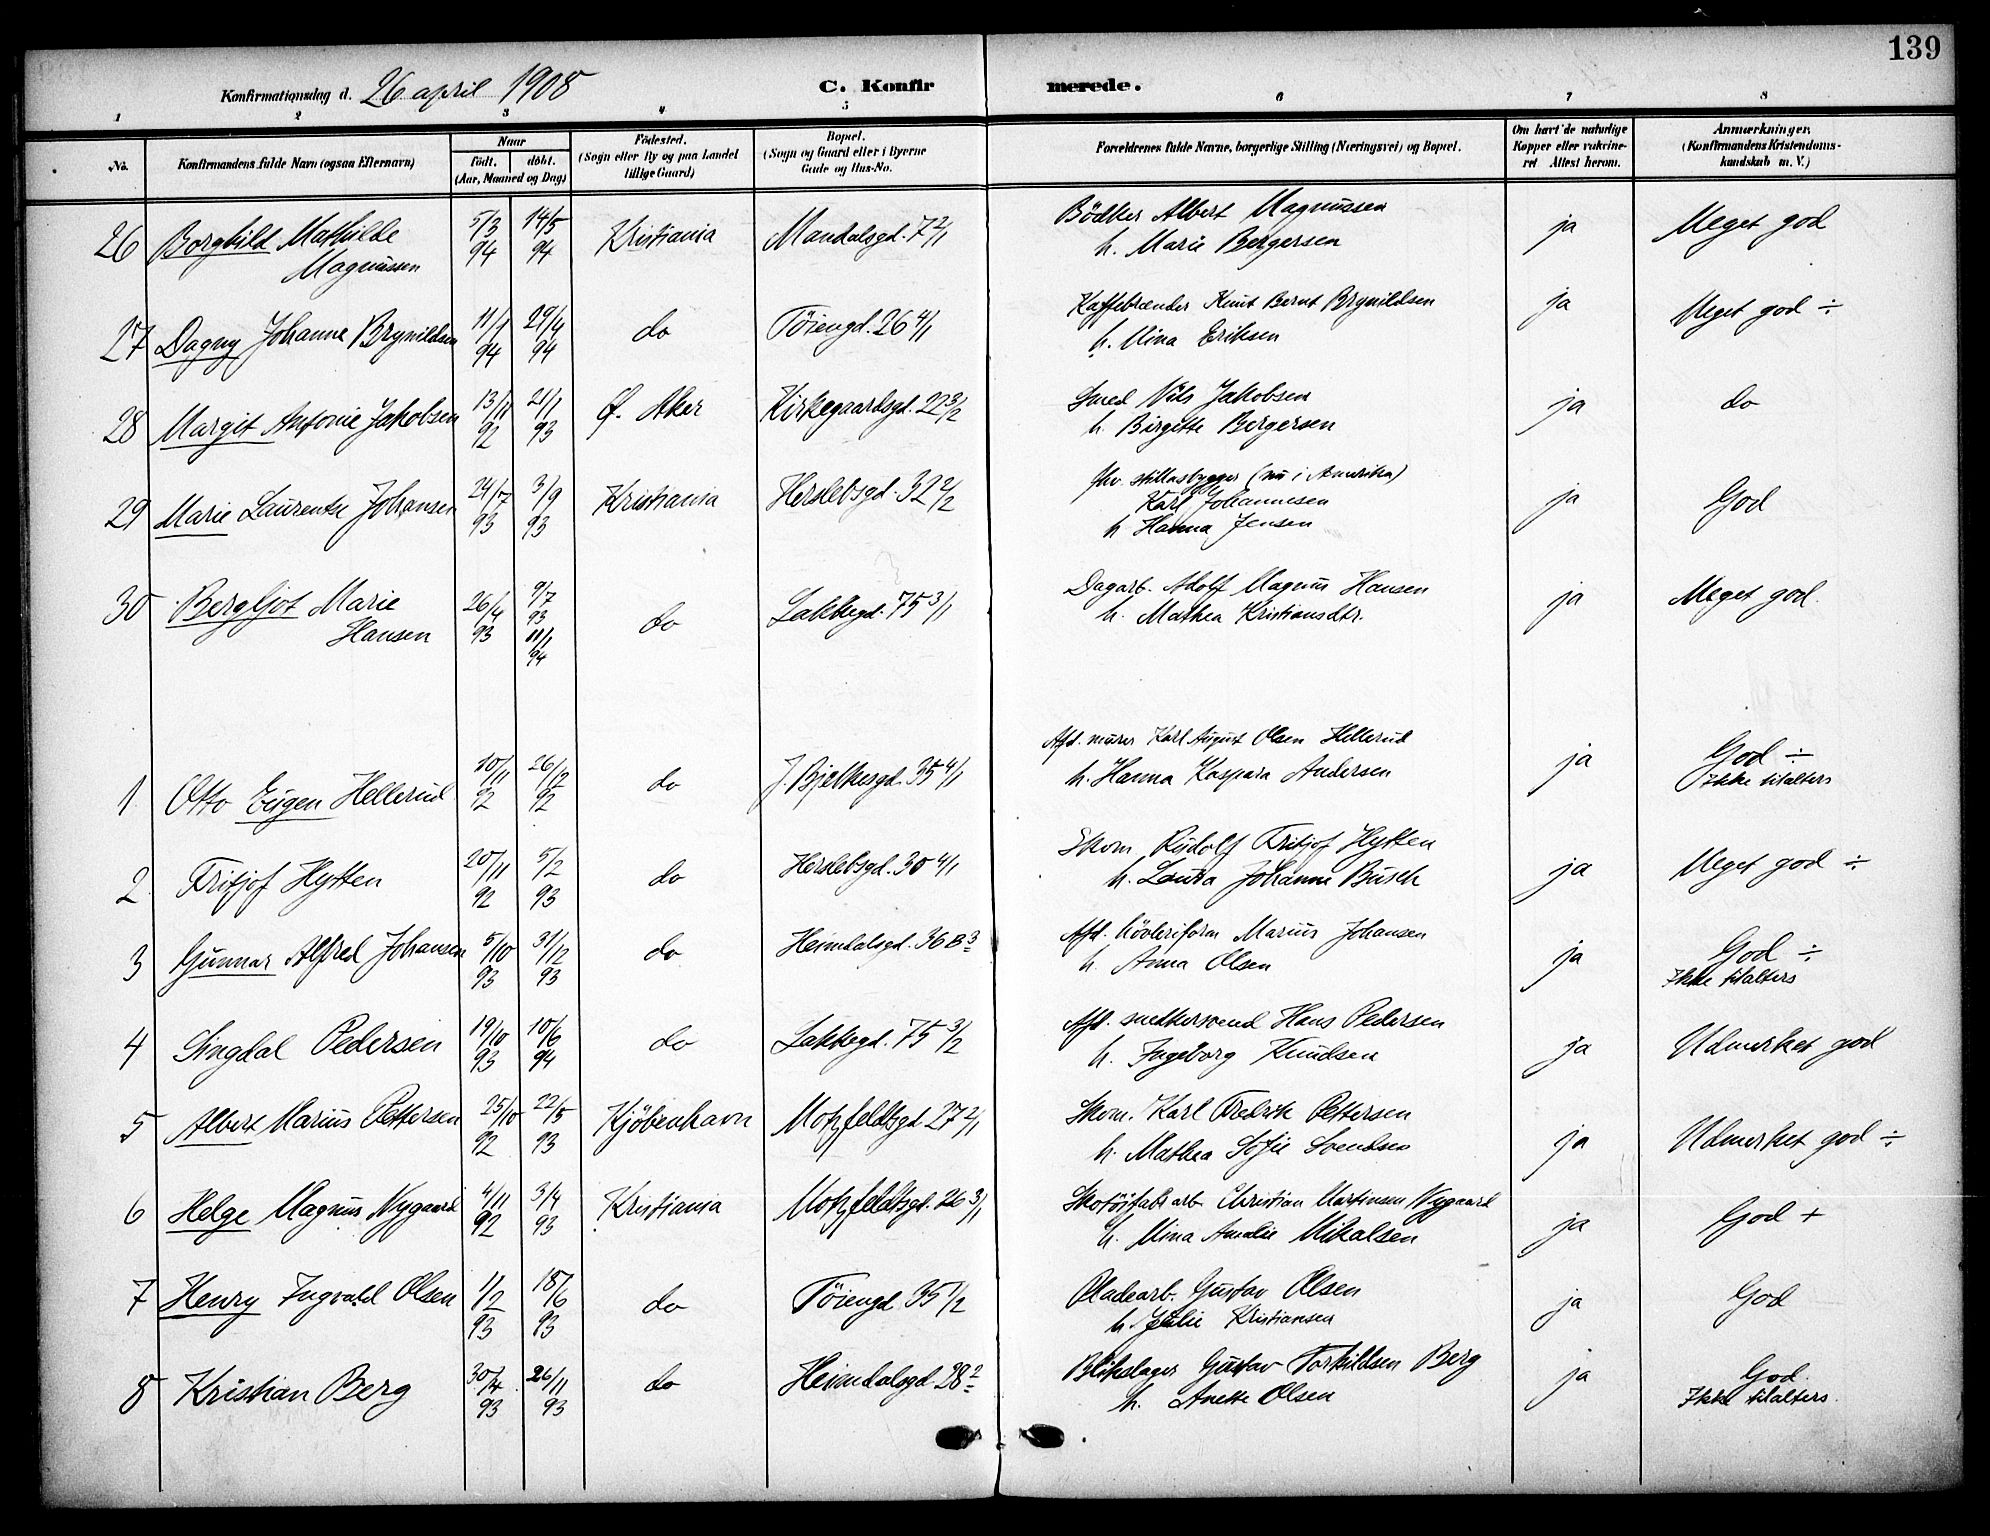 139
Konfirmationsdag d. 26 april 1908
C. Konfirmerede.
1 2 3 4 5 6 7 8
No. Konfirmandens fulde Navn (ogsaa Efternavn) Naar født. døbt. (Aar, Maaned og Dag) Fødested. (Sogn eller By og paa Landet tillige Gaard) Bopæl. (Sogn og Gaard eller i Byerne Gade og Hus-No. Forældrenes fulde Navne, borgerlige Stilling (Næringsvei) og Bopæl. Om havt de naturlige Kopper eller vakcineret Attest herom. Anmærkninger. (Konfirmandens Kristendomskundskab m. V.)
26 Borghild Mathilde Magnussen 5/3 94 14/5 94 Kristiania Mandalsgd. 7 2/1 Bödker Albert Magnussen h. Marie Bergersen ja Meget god
27 Dagny Johanne Brynildsen 11/1 94 29/4 94 do Töiengd. 26 4/1 Kaffebrænder Knut Bernt Brynildsen h. Mina Eriksen ja Meget god ÷
28 Margit Antonie Jakobsen 13/11 92 21/1 93 Ø. Aker Kirkegaardsgd. 22 3/2 Smed Nils Jakobsen h. Birgitte Bergersen ja do
29 Marie Laurentse Johansen 24/7 93 3/9 93 Kristiania Herslebsgd. 32 2/2 fhv. stillasbygger (nu i Amerika) Karl Johannesen h Hanna Jensen ja God
30 Bergljot Marie Hansen 26/4 93 9/7 93 /1 94 do Lakkegd. 75 3/1 Dagarb. Adolf Magnus Hansen h. Mathea Kristiansdtr. ja Meget god.
1 Otto Eugen Hellerud 10/11 92 26/12 92 do J. Bjelkesgd. 35 4/1 Afd. murer Karl August Olsen Hellerud h. Hanna Kaspara Andersen ja God ÷ Ikke tilalters
2 Fritjof Hytten 20/11 92 5/2 93 do Herslebsgd. 30 4/1 Skom. Rudolf Fritjof Hytten h. Laura Johanne Busch ja Meget god ÷
3 Gunnar Alfred Johansen 5/10 93 31/12 93 do Heimdalsgd. 36 B 3 Afd. höveriform Marius Johansen h. Anna Olsen ja God ÷ Ikke tilalters
4 Singdal Pedersen 19/10 93 10/6 94 do Lakkegd. 75 3/2 Afd. snedkersvend Hans Pedersen h. Ingeborg Knudsen ja Udmerket god
5 Albert Marius Pettersen 25/10 92 22/5 93 Kjöbenhavn Motzfeldtsgd 27 2/1 Skom. Karl Fredrik Pettersen h. Mathea Sofie Svendsen ja Udmerket god ÷
6 Helge Magnus Nygaard 4/11 92 3/4 93 Kristiania Motzfeldtsgd. 26 3/1 Skotöifabr arb Christian Martinsen Nygaard h. Mina Amalie Mikalsen ja God +
7 Henry Ingvald Olsen 1/2 93 18/6 93 do Töiengd 35 1/2 Pladearb. Gustav Olsen h. Julie Kristiansen ja God
8 Kristian Berg 30/4 93 26/11 93 do Heimdalsgd. 38 2 Blikslager Gustav Torkildsen Berg h. Anette Olsen ja God. Ikke tilalters.